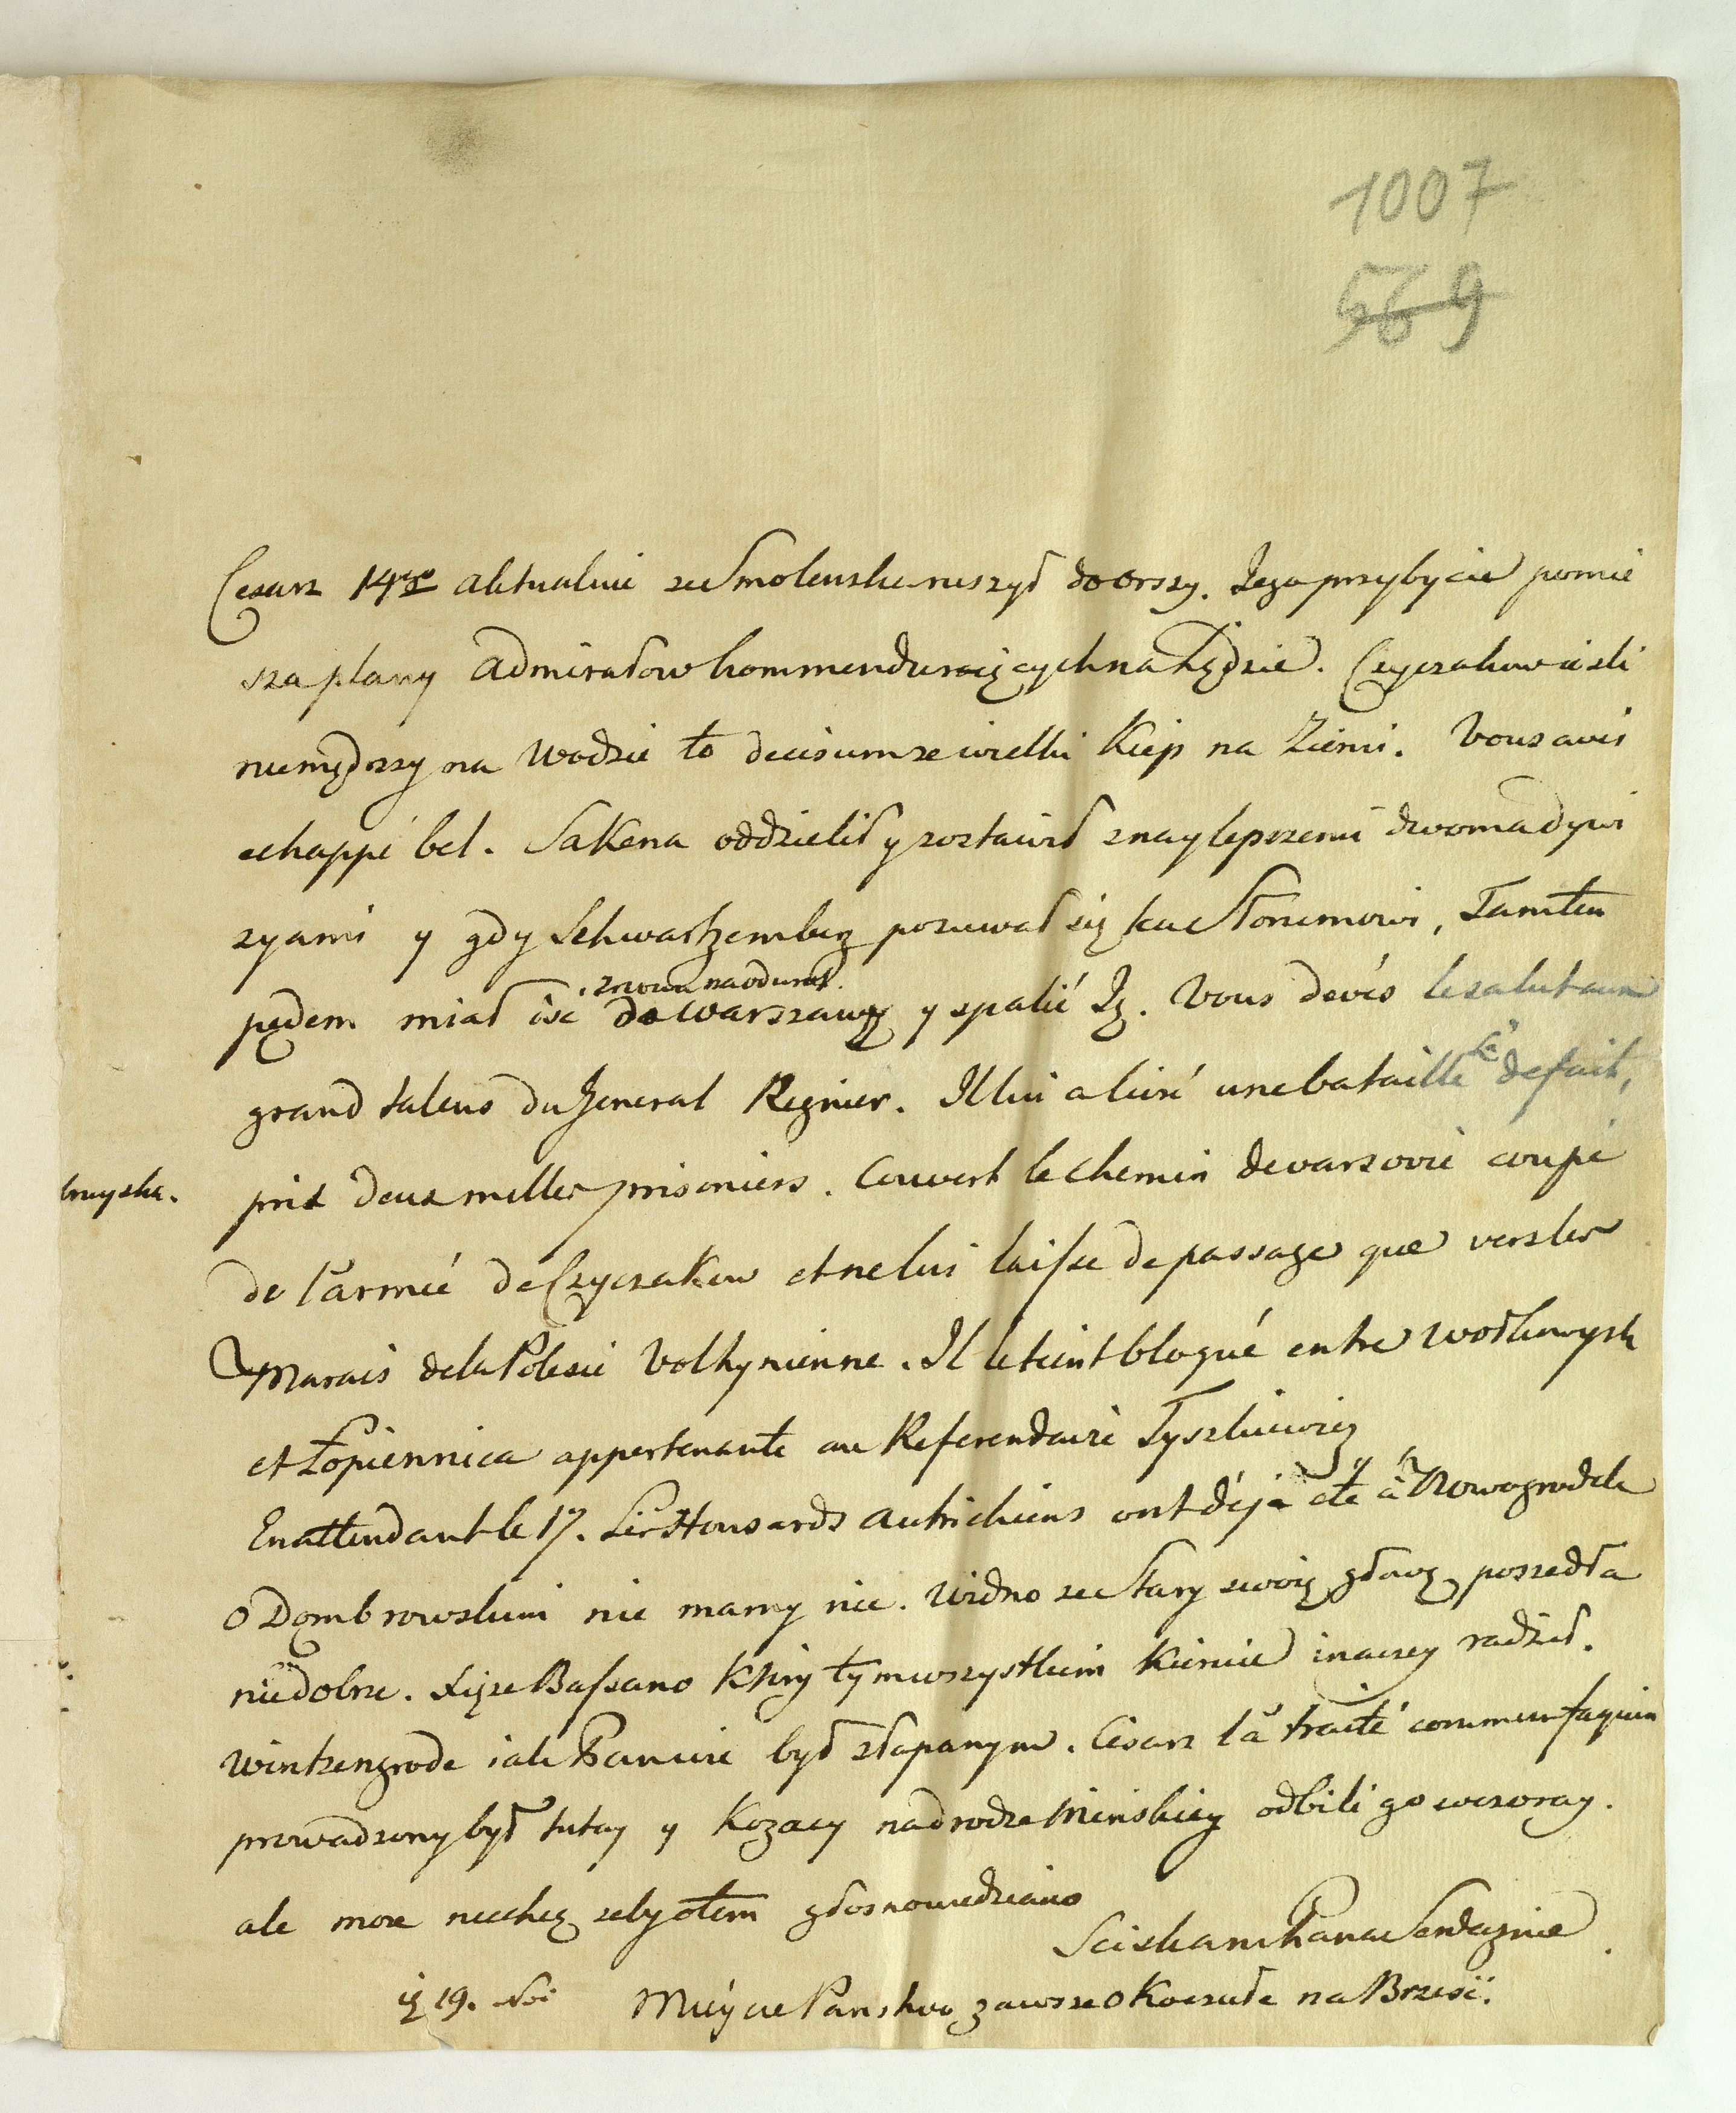 1007
569
Cesarz 14go aktualnie ze Smolenska ruszył do Orszy. Jego przybycie pomie
sza plany Admirałow kommenderuiących na Lądzie. Czyczakow ieźli
niemędrszy na Wodzie to decisum ze wielki Kiep na Ziemi. Vous avés
echappé bel. Sakena oddzielił y zostawił z naylepszemi dwoma dywi
zyami y gdy Schwartzemberg posuwał się ku Słonimowi, Tamten
znowu na odwrót
pędem miał iść do Warszawy y spalić Ją. Vous devés le salut aux
grand talens du General Regnier. Il lui a livré une bataille la defait,
bruyska.
pris deux milles prisoniers. Couvert le chemin de varsovie coupé
de l'armeé de Czyczakow et ne lui laisse de passage que vers les
Marais de la Polesie Volhynienne. Il le tient bloqué entre Wołkowysk
et Łopiennica appertenante au Referendaire Tyszkiewicz
En attendant le 17. Les Housards Autrichiens ont déja été à Nowogrodek
O Dombrowskim nie mamy nic. Widno ze Stary swoią głową poszedł a
niedobrze. Xiąze Bassano Ktory tym wszystkim Kieruie inaczey radził.
Wintzengrode iak Panicze był złapanym. Cesarz l'a traité comme un faquin
prowadzony był tutay y Kozacy na drodze Minskiey odbili go wczoray.
ale moze niechcą zeby o tem głosno wiedziano
Sciskam Pana Serdecznie
19. Nov
Mieycie Panstwo zawsze oko czułe na Brzesć.